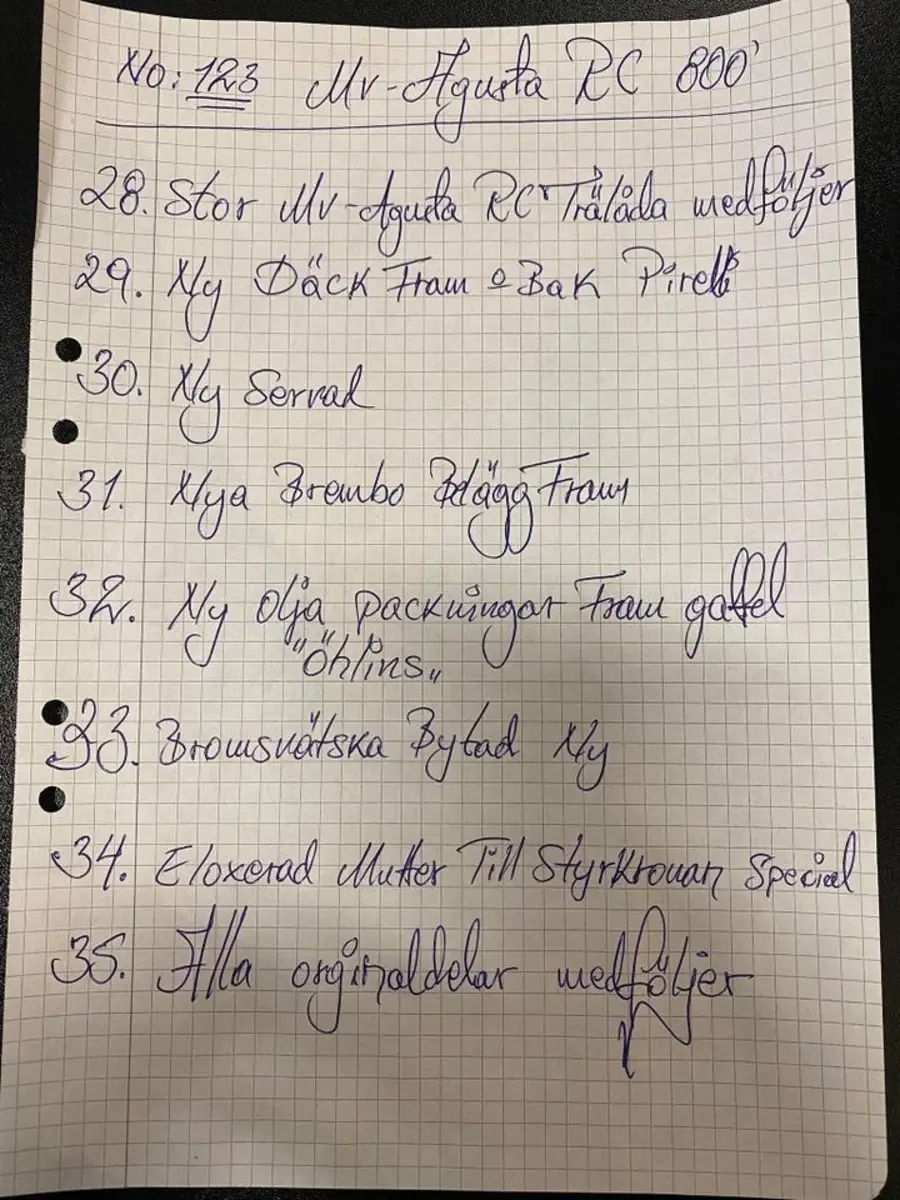 No: 123 Mv-Agusta RC 800'
28. Stor Mv-Agusta RC Trälåda medföljer
29. Ny Däck Fram o Bak Pirelli
30. Ny Servad
31. Nya Brembo Belägg Fram
32. Ny olja packningar Fram gaffel
"Öhlins"
33. Bromsvätska Bytad Ny
34. Eloxerad Mutter Till Styrkronan Special
35. Alla orginaldelar medföljer